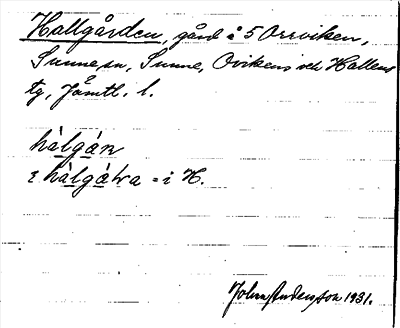 Hallgården, gård i 5 Orrviken,
Sunne sn, Sunne, Ovikens och Hallens
tg, Jämtl. l.
hàlgáɳ
ɛ hàlgátra = i H.
John Andersson 1931.